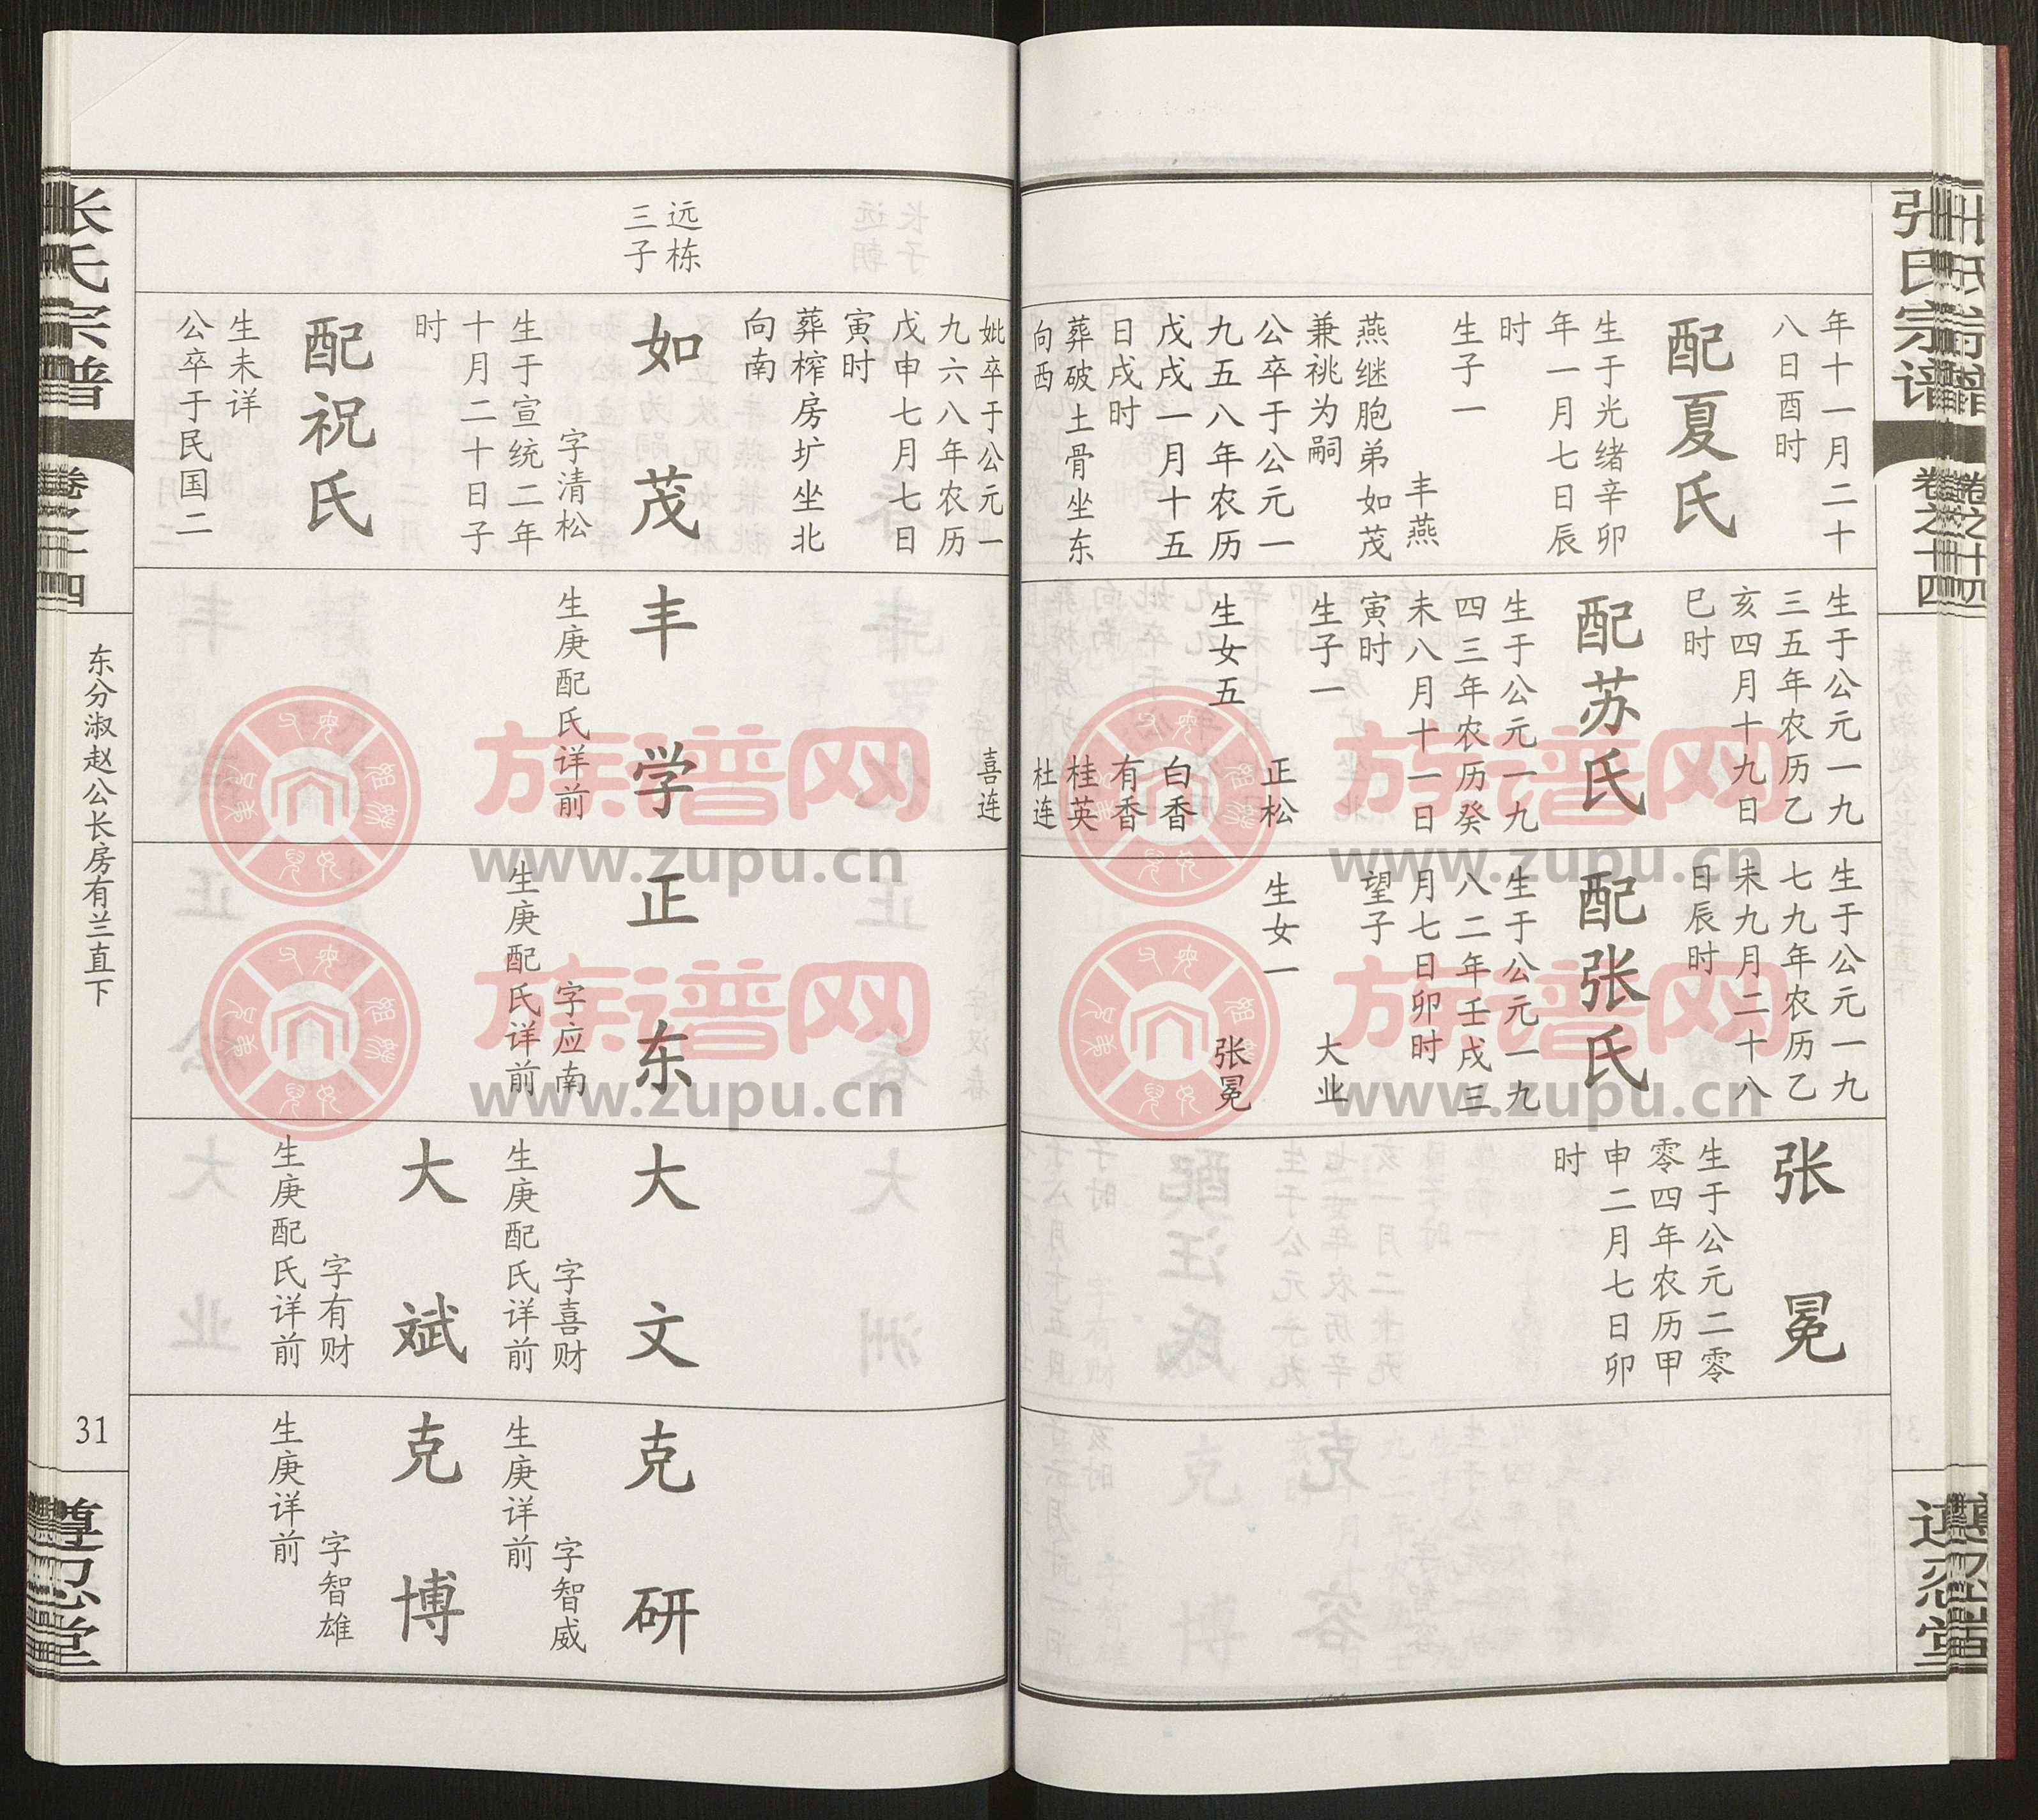 张氏宗谱
卷之十四
遵忍堂
年十一月二十
八日酉时
配夏氏
生于光绪辛卯
年一月七日辰
时
生子一
丰燕
燕继胞弟如茂
兼祧为嗣
公卒于公元一
九五八年农历
戊戌一月十五
日戌时
葬破土骨坐东
向西
生于公元一九
三五年农历乙
亥四月十九日
巳时
配苏氏
生于公元一九
四三年农历癸
未八月十一日
寅时
生子一
正松
生女五
白香
有香
桂英
杜连
生于公元一九
七九年农历乙
未九月二十八
日辰时
配张氏
生于公元一九
八二年壬戌三
月七日卯时
望子
大业
生女一
张冕
张冕
生于公元二零
零四年农历甲
申二月七日卯
时
远栋
三子
妣卒于公元一
九六八年农历
戊申七月七日
寅时
葬榨房圹坐北
向南
如茂
字清松
生于宣统二年
十月二十日子
时
配祝氏
生未详
公卒于民国二
喜连
丰学
生庚配氏详前
正东
字应南
生庚配氏详前
大文
字喜财
生庚配氏详前
大斌
字有财
生庚配氏详前
克研
字智威
生庚详前
克博
字智雄
生庚详前
张氏宗谱
卷之十四
东分淑赵公长房有兰直下
31
遵忍堂
族谱网
www.zupu.cn
族谱网
www.zupu.cn
族谱网
www.zupu.cn
族谱网
www.zupu.cn